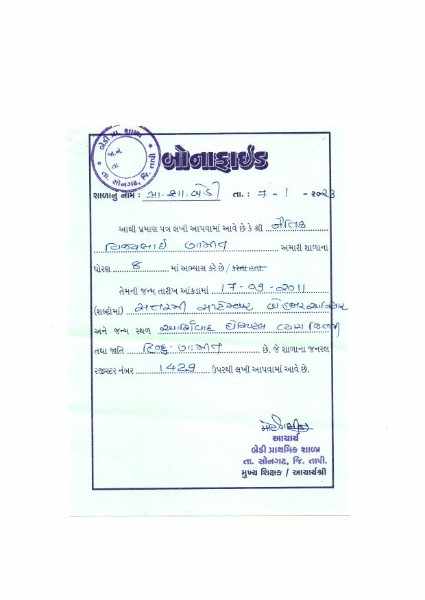 બેડી પ્રા. શાળા
તા. સોનગઢ, જિ. તાપી
બોનાફાઈડ
શાળાનું નામ : પ્રા.શા.બેડી તા. : 7 - 1 - ૨૦૨3
આથી પ્રમાણ પત્ર લખી આપવામાં આવે છે કે શ્રી નૈતિક
ગામીત અમારી શાળાના
ધોરણ 8 માં અભ્યાસ કરે છે / કરતા હતા
તેમની જન્મ તારીખ આંકડામાં 17-09-2011
(શબ્દોમાં) સત્તરમી સપ્ટેમ્બર બે હજાર અગિયાર
અને જન્મ સ્થળ હોસ્પિટલ વ્યારા
તથા જાતિ હિન્દુ ગામીત છે. જે શાળાના જનરલ
રજીસ્ટર નંબર 1429 ઉપરથી લખી આપવામાં આવે છે.
આચાર્ય
બેડી પ્રાથમિક શાળા
તા. સોનગઢ, જિ. તાપી.
મુખ્ય શિક્ષક / આચાર્યશ્રી